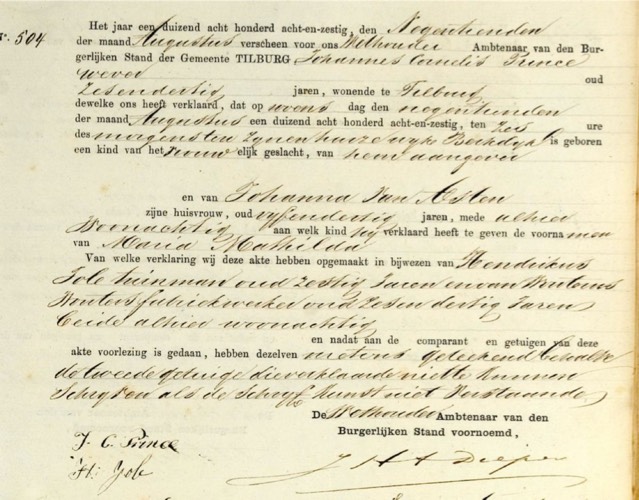 Nr. 504
Het jaar een duizend acht honderd acht-en-zestig, den Negentienden
der maand Augustus verscheen voor ons Wethouder Ambtenaar van den Bur-
gerlijken Stand der Gemeente TILBURG Johannes Cornelis Prince
wever oud
Zesendertig jaren, wonende te Tilburg
dewelke ons heeft verklaard, dat op woens dag den negentienden
der maand Augustus een duizend acht honderd acht-en-zestig, ten Zes ure
des morgens ten Zynen huize wyk is geboren
een kind van het vrouw elijk geslacht, van hem aangever
en van Johanna Van Asten
zijne huisvrouw, oud vyfendertig jaren, mede alhier
Woonachtig aan welk kind hij verklaard heeft te geven de voorna men
van Maria Mathilda
Van welke verklaring wij deze akte hebben opgemaakt in bijwezen van Hendrikus
Jole tuinman oud Zestig Jaren en van
Wouters fabriekwerker oud Zesendertig Jaren
beide alhier woonachtig
en nadat aan de comparant en getuigen van deze
akte voorlezing is gedaan, hebben dezelven met ons geteekend behalve
de tweede getuige die verklaarde niet te kunnen
Schryven als de Schryf kunst niet verstaande
De Wethouder Ambtenaar van den
Burgerlijken Stand voornoemd,
J. C. Prince
H. Jole